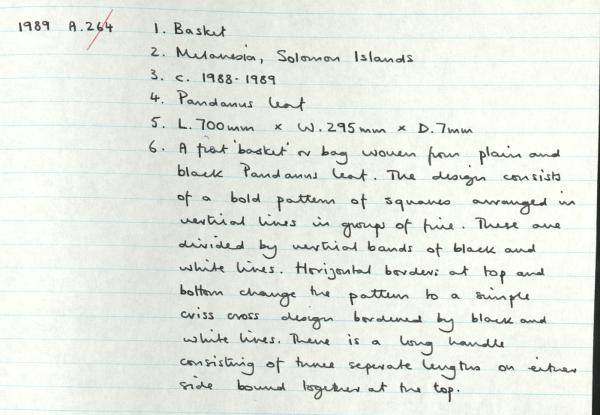 1989 A.264 1. Basket
2. Melanesia, Solomon Islands
3. c. 1988-1989
4. Pandanus leaf
5. L.700mm x W.295mm x D.7mm
6. A flat 'basket' or bag woven from plain and
black Pandanus leaf. The design consists
of a bold pattern of squares arranged in
vertical lines in groups of five. These are
divided by vertical bands of black and
white lines. Horizontal borders at top and
bottom change the pattern to a simple
criss cross design bordered by black and
white lines. There is a long handle
consisting of three seperate lengths on either
side bound together at the top.